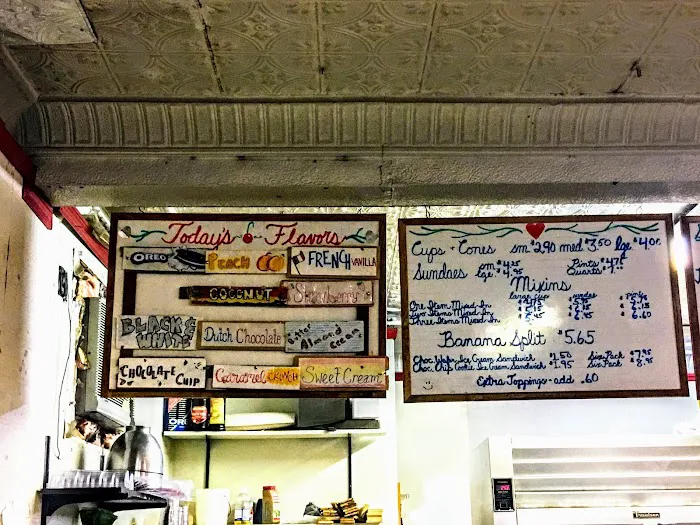 Today's Flavors
OREO PEACH FRENCH VANILLA
COCONUT Strawberry
BLACK & WHITE Dutch Chocolate Butter Almond Cream
CHOCOLATE CHIP Caramel CRUNCH Sweet Cream
Cups - Cones sm $2.90 med $3.50 lge $4.00
Sundaes sm $4.25 Pints
lge $4.95 Quarts
Mixins
large cup sundae pints
One Item Mixed In
Two Items Mixed In
Three Items Mixed In 6.60
Banana Split $5.65
Choc. Wafer Ice Cream Sandwich $1.50 Six Pack $7.95
Choc. Chip Cookie Ice Cream Sandwich $1.95 Six Pack $8.95
Extra Toppings - add .60